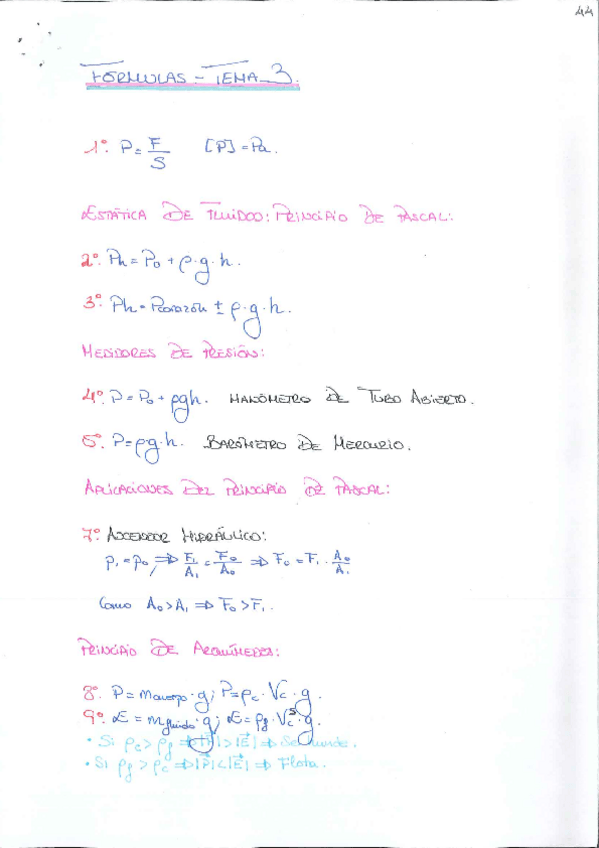 44
FÓRMULAS - TEMA 3.
1º. P = F/S [P] = Pa.
ESTÁTICA DE FLUIDOS: PRINCIPIO DE PASCAL:
2º. Ph = Po + ρ·g·h.
3º. Ph = Pcorazón ± ρ·g·h.
MEDIDORES DE PRESIÓN:
4º. P = Po + ρgh. MANÓMETRO DE TUBO ABIERTO.
5º. P = ρg·h. BARÓMETRO DE MERCURIO.
APLICACIONES DEL PRINCIPIO DE PASCAL:
7º. ASCENSOR HIDRÁULICO:
P₁ = P₀, ⇒ F₁/A₁ = F₀/A₀ ⇒ F₀ = F₁ · A₀/A₁
Como A₀ > A₁ ⇒ F₀ > F₁.
PRINCIPIO DE ARQUÍMEDES:
8º. P = mcuerpo · g; P = ρc · Vc · g.
9º. E = mfluido · g; E = ρf · Vcˢ · g.
• Si ρc > ρf ⇒ |P⃗| > |E⃗| ⇒ Se hunde.
• Si ρf > ρc ⇒ |P⃗| < |E⃗| ⇒ Flota.